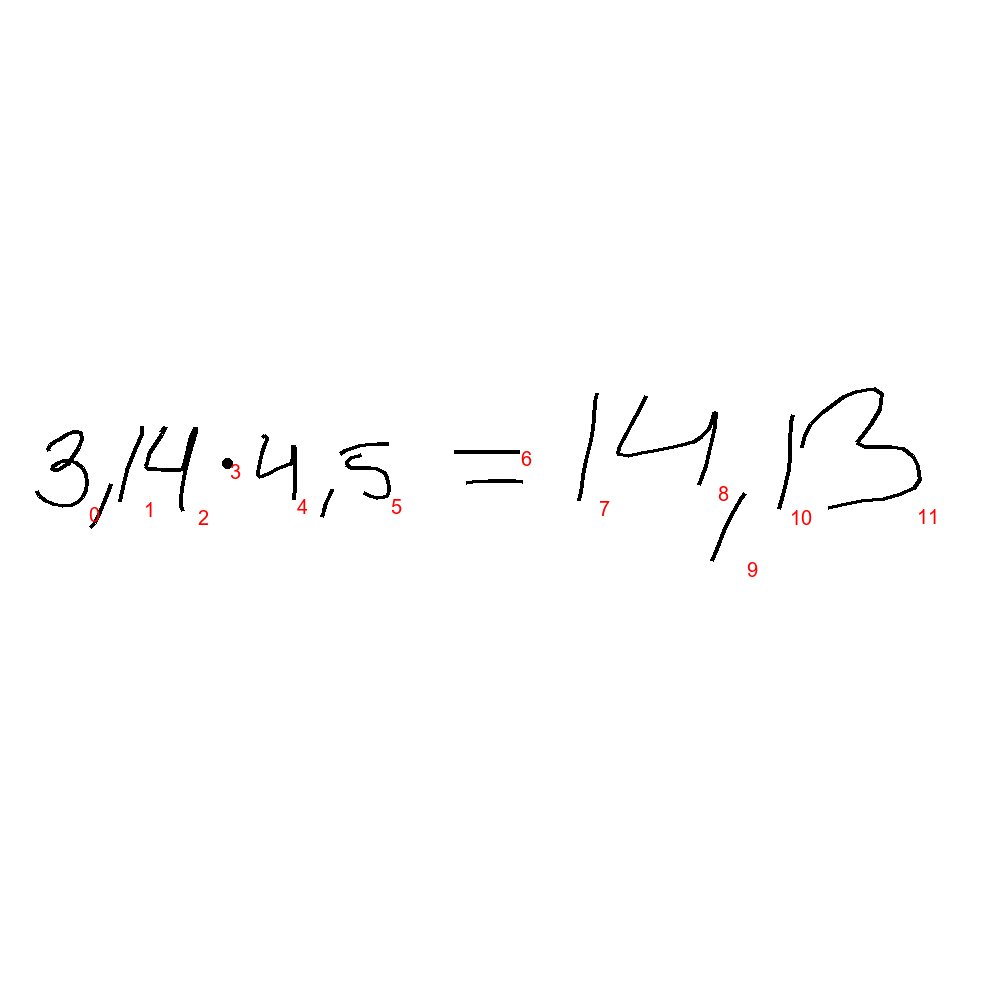 3,14 · 4,5 = 14,13
0 1 2 3 4 5 6 7 8 9 10 11